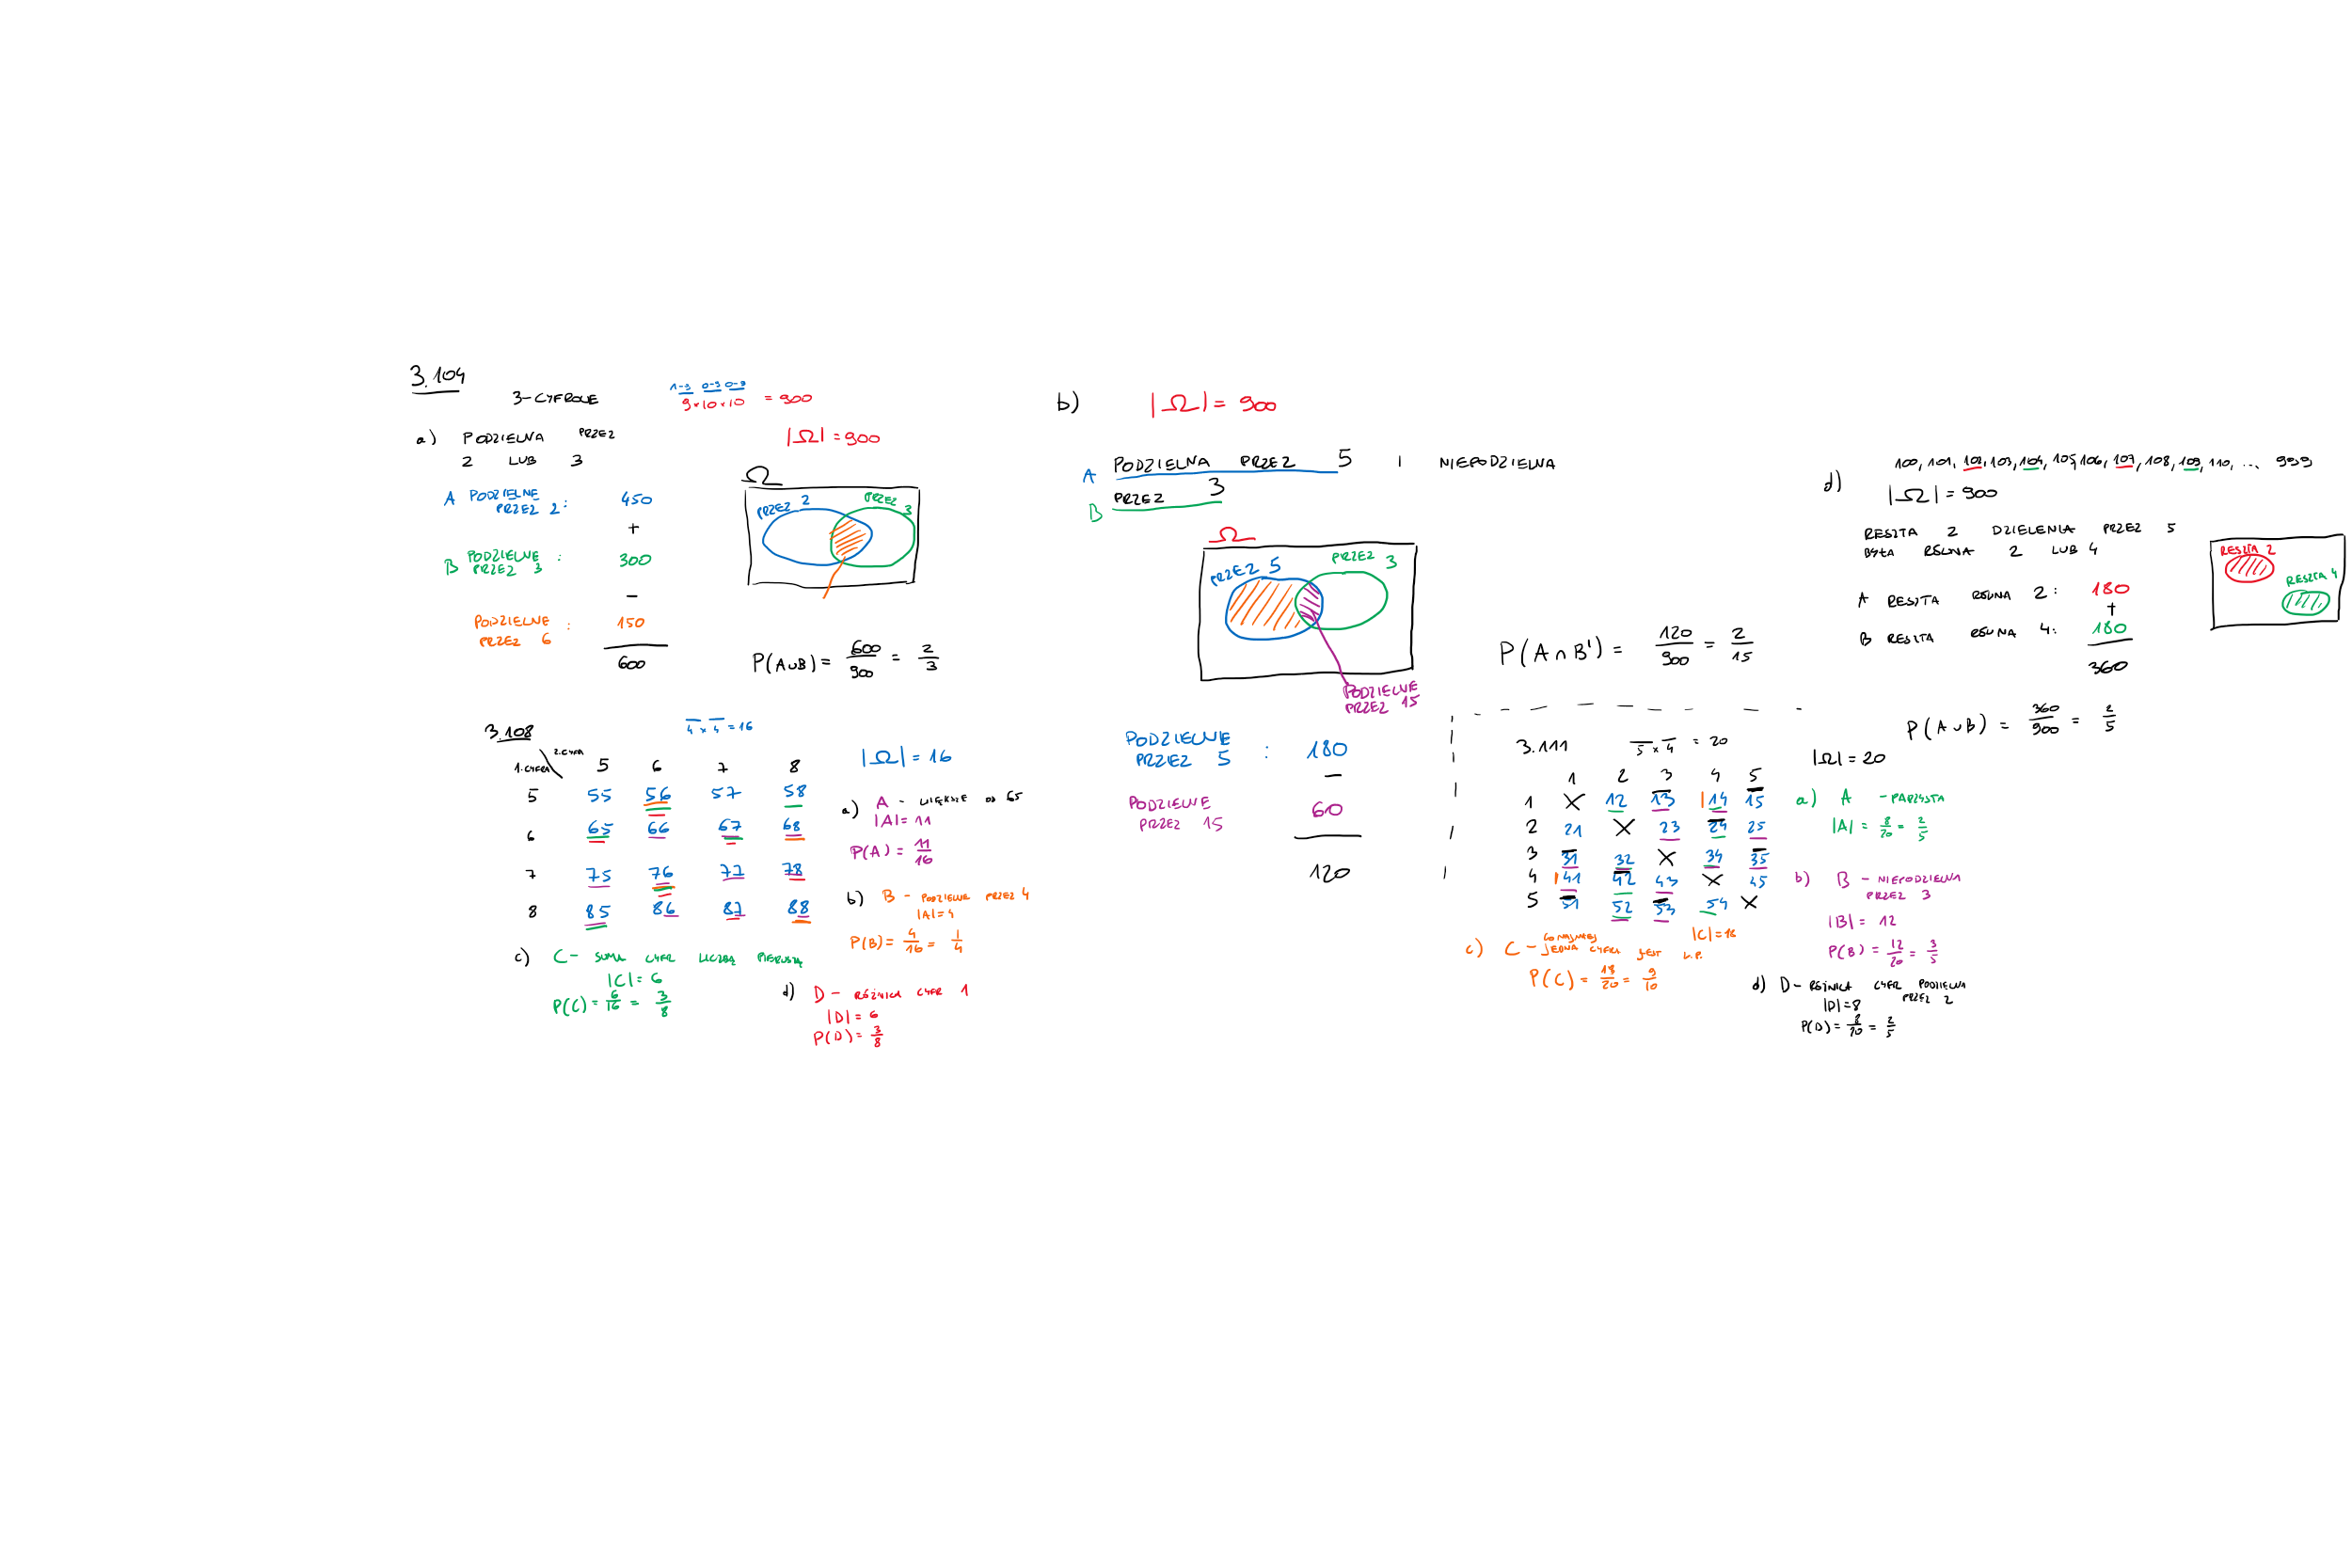 3.104
3-CYFROWE
1-9 0-9 0-9
9×10×10 = 900
a) PODZIELNA PRZEZ
2 LUB 3
|Ω| = 900
A PODZIELNE
PRZEZ 2: 450
+
B PODZIELNE
PRZEZ 3 : 300
-
PODZIELNE
PRZEZ 6 : 150
600
Ω
PRZEZ 2
PRZEZ 3
P(A∪B) = 600/900 = 2/3
b) |Ω| = 900
A PODZIELNA PRZEZ 5 I NIEPODZIELNA
B PRZEZ 3
Ω
PRZEZ 5
PRZEZ 3
PODZIELNE
PRZEZ 15
PODZIELNE
PRZEZ 5 : 180
-
PODZIELNE
PRZEZ 15 60
120
P(A∩B') = 120/900 = 2/15
d) 100, 101, 102, 103, 104, 105, 106, 107, 108, 109, 110, ... 999
|Ω| = 900
RESZTA Z DZIELENIA PRZEZ 5
BYŁA RÓWNA 2 LUB 4
A RESZTA RÓWNA 2: 180
+
B RESZTA RÓWNA 4: 180
360
RESZTA 2
RESZTA 4
P(A∪B) = 360/900 = 2/5
3.108
4 × 4 = 16
1. CYFRA \ 2. CYFRA
5 6 7 8
5 55 56 57 58
6 65 66 67 68
7 75 76 77 78
8 85 86 87 88
|Ω| = 16
a) A - WIĘKSZE OD 65
|A| = 11
P(A) = 11/16
b) B - PODZIELNE PRZEZ 4
|A| = 4
P(B) = 4/16 = 1/4
c) C - SUMA CYFR LICZBĄ PIERWSZĄ
|C| = 6
P(C) = 6/16 = 3/8
d) D - RÓŻNICA CYFR 1
|D| = 6
P(D) = 3/8
3.111
5 × 4 = 20
|Ω| = 20
1 2 3 4 5
1 X 12 13 14 15
2 21 X 23 24 25
3 31 32 X 34 35
4 41 42 43 X 45
5 51 52 53 54 X
a) A - PARZYSTA
|A| = 8/20 = 2/5
b) B - NIEPODZIELNA
PRZEZ 3
|B| = 12
P(B) = 12/20 = 3/5
c) C - CO NAJMNIEJ
JEDNA CYFRA JEST L.P.
|C| = 18
P(C) = 18/20 = 9/10
d) D - RÓŻNICA CYFR PODZIELNA
PRZEZ 2
|D| = 8
P(D) = 8/20 = 2/5